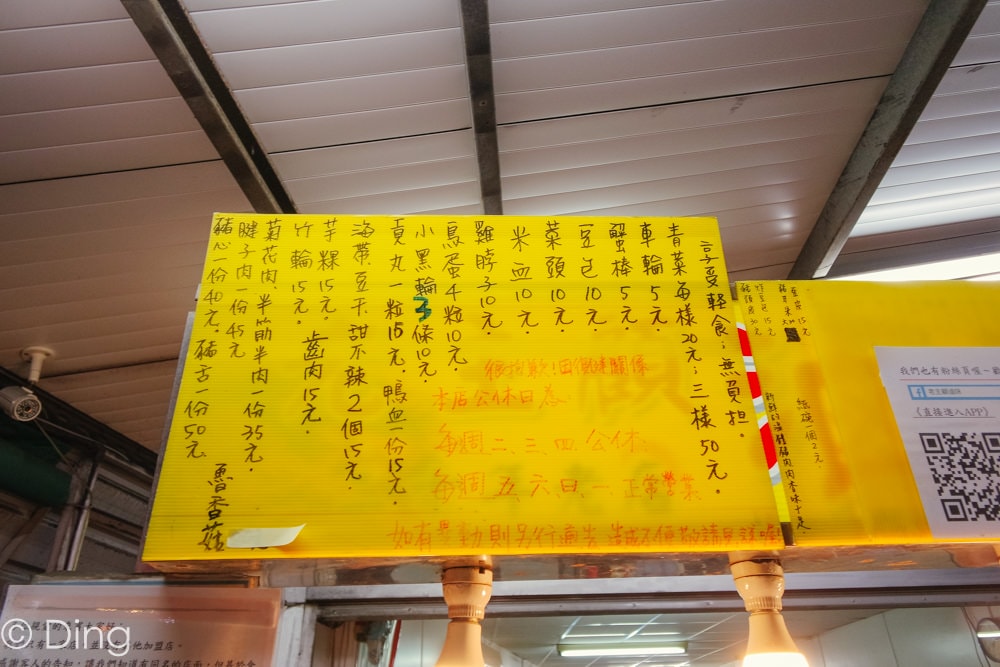 享受輕食：無負担。
青菜每樣20元：三樣50元。
車輪5元。
蟹棒5元。
豆包10元。
菜頭10元。
米血10元。
雞脖子10元
鳥蛋4粒10元.
小黑輪3條10元.
貢丸一粒15元.鴨血一份15元.
海帶豆干甜不辣2個15元.
芋粿15元. 齒肉15元.
竹輪15元.
菊花肉半筋半肉一份35元.
腱子肉一份45元
豬心一份40元.豬舌一份50元.
魯香菇
很抱歉!因
關係
本店公休日為
每週二三四公休
每週五六日一正常營業
如有異動則另行通告 造成不便敬請見諒
一個2元.
我們也有粉絲頁喔
《直接進入APP》
© Ding